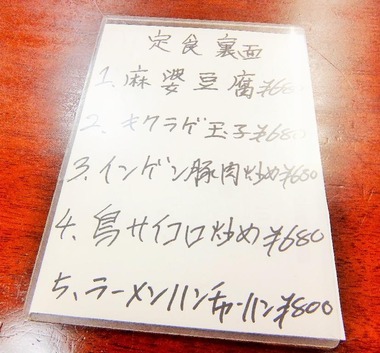 定食 裏面
1. 麻婆豆腐 ¥680
2. キクラゲ玉子 ¥680
3. インゲン豚肉炒め ¥680
4. 鳥サイコロ炒め ¥680
5、ラーメンハンチャーハン ¥800